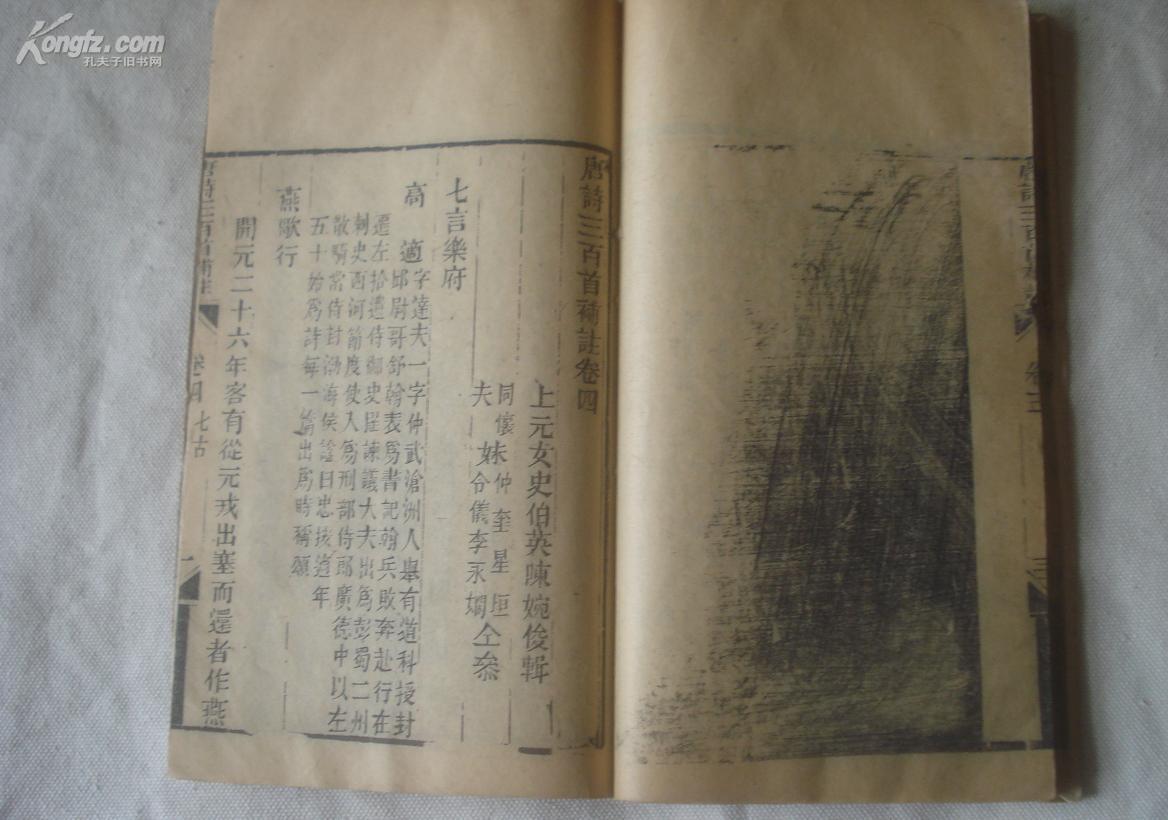 Kongfz.com
孔夫子旧书网
唐詩三百首補註
卷三
三
唐詩三百首補註卷四
上元女史伯英陳婉俊輯
同懷妹仲奎星垣
夫妹令儀李永嫻仝叅
七言樂府
高適
字達夫一字仲武滄洲人舉有道科授封
邱尉哥舒翰表為書記翰兵敗奔赴行在
遷左拾遺侍御史擢諫議大夫出為彭蜀二州
刺史西河節度使入為刑部侍郎廣德中以左
散騎常侍封渤海侯諡曰忠

五十始為詩每一篇出為時稱頌
燕歌行
開元二十六年客有從元戎出塞而還者作燕
唐詩三百首補註
卷四
七古
一